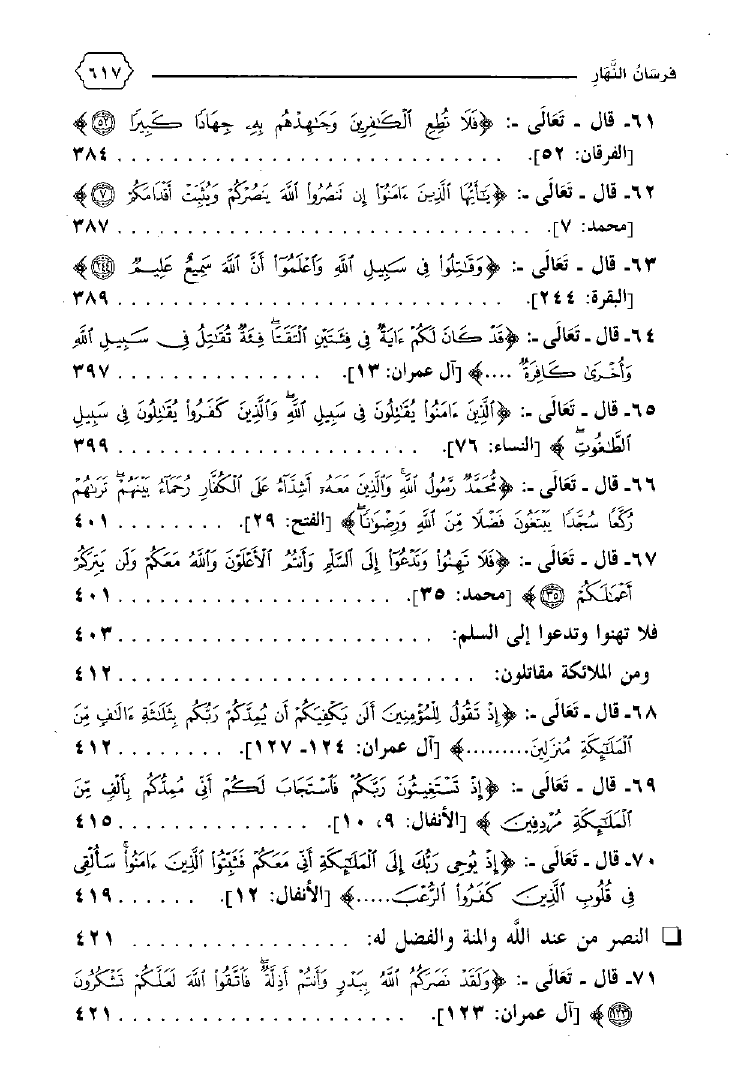 فرسَانُ النَّهَارِ ٦١٧
٦١- قال - تَعَالَى -: ﴿فَلَا تُطِعِ ٱلْكَٰفِرِينَ وَجَٰهِدْهُم بِهِۦ جِهَادًا كَبِيرًا ۝٥٢﴾
[الفرقان: ٥٢]. . . . . . . . . . . . . . . . . . . . . . . . . . . . . ٣٨٤
٦٢- قال - تَعَالَى -: ﴿يَٰٓأَيُّهَا ٱلَّذِينَ ءَامَنُوٓا۟ إِن تَنصُرُوا۟ ٱللَّهَ يَنصُرْكُمْ وَيُثَبِّتْ أَقْدَامَكُمْ ۝٧﴾
[محمد: ٧]. . . . . . . . . . . . . . . . . . . . . . . . . . . . . . . ٣٨٧
٦٣- قال - تَعَالَى -: ﴿وَقَٰتِلُوا۟ فِى سَبِيلِ ٱللَّهِ وَٱعْلَمُوٓا۟ أَنَّ ٱللَّهَ سَمِيعٌ عَلِيمٌ ۝٢٤٤﴾
[البقرة: ٢٤٤]. . . . . . . . . . . . . . . . . . . . . . . . . . . . . ٣٨٩
٦٤- قال - تَعَالَى -: ﴿قَدْ كَانَ لَكُمْ ءَايَةٌ فِى فِئَتَيْنِ ٱلْتَقَتَا ۖ فِئَةٌ تُقَٰتِلُ فِى سَبِيلِ ٱللَّهِ
وَأُخْرَىٰ كَافِرَةٌ ....﴾ [آل عمران: ١٣]. . . . . . . . . . . . . . . . ٣٩٧
٦٥- قال - تَعَالَى -: ﴿ٱلَّذِينَ ءَامَنُوا۟ يُقَٰتِلُونَ فِى سَبِيلِ ٱللَّهِ ۖ وَٱلَّذِينَ كَفَرُوا۟ يُقَٰتِلُونَ فِى سَبِيلِ
ٱلطَّٰغُوتِ ۖ﴾ [النساء: ٧٦]. . . . . . . . . . . . . . . . . . . . . . ٣٩٩
٦٦- قال - تَعَالَى -: ﴿مُّحَمَّدٌ رَّسُولُ ٱللَّهِ ۚ وَٱلَّذِينَ مَعَهُۥٓ أَشِدَّآءُ عَلَى ٱلْكُفَّارِ رُحَمَآءُ بَيْنَهُمْ ۖ تَرَىٰهُمْ
رُكَّعًا سُجَّدًا يَبْتَغُونَ فَضْلًا مِّنَ ٱللَّهِ وَرِضْوَٰنًا ۖ﴾ [الفتح: ٢٩]. . . . . . . . . ٤٠١
٦٧- قال - تَعَالَى -: ﴿فَلَا تَهِنُوا۟ وَتَدْعُوٓا۟ إِلَى ٱلسَّلْمِ وَأَنتُمُ ٱلْأَعْلَوْنَ وَٱللَّهُ مَعَكُمْ وَلَن يَتِرَكُمْ
أَعْمَٰلَكُمْ ۝٣٥﴾ [محمد: ٣٥]. . . . . . . . . . . . . . . . . . . . . ٤٠١
فلا تهنوا وتدعوا إلى السلم: . . . . . . . . . . . . . . . . . . . . . . ٤٠٣
ومن الملائكة مقاتلون: . . . . . . . . . . . . . . . . . . . . . . . . . ٤١٢
٦٨- قال - تَعَالَى -: ﴿إِذْ تَقُولُ لِلْمُؤْمِنِينَ أَلَن يَكْفِيَكُمْ أَن يُمِدَّكُمْ رَبُّكُم بِثَلَٰثَةِ ءَالَٰفٍ مِّنَ
ٱلْمَلَٰٓئِكَةِ مُنزَلِينَ.........﴾ [آل عمران: ١٢٤- ١٢٧]. . . . . . . . . . ٤١٢
٦٩- قال - تَعَالَى -: ﴿إِذْ تَسْتَغِيثُونَ رَبَّكُمْ فَٱسْتَجَابَ لَكُمْ أَنِّى مُمِدُّكُم بِأَلْفٍ مِّنَ
ٱلْمَلَٰٓئِكَةِ مُرْدِفِينَ ﴾ [الأنفال: ٩، ١٠]. . . . . . . . . . . . . . . ٤١٥
٧٠- قال - تَعَالَى -: ﴿إِذْ يُوحِى رَبُّكَ إِلَى ٱلْمَلَٰٓئِكَةِ أَنِّى مَعَكُمْ فَثَبِّتُوا۟ ٱلَّذِينَ ءَامَنُوا۟ ۚ سَأُلْقِى
فِى قُلُوبِ ٱلَّذِينَ كَفَرُوا۟ ٱلرُّعْبَ.....﴾ [الأنفال: ١٢]. . . . . . . ٤١٩
❑ النصر من عند اللَّه والمنة والفضل له: . . . . . . . . . . . . . . . . ٤٢١
٧١- قال - تَعَالَى -: ﴿وَلَقَدْ نَصَرَكُمُ ٱللَّهُ بِبَدْرٍ وَأَنتُمْ أَذِلَّةٌ ۖ فَٱتَّقُوا۟ ٱللَّهَ لَعَلَّكُمْ تَشْكُرُونَ
۝١٢٣﴾ [آل عمران: ١٢٣]. . . . . . . . . . . . . . . . . . . . . . ٤٢١